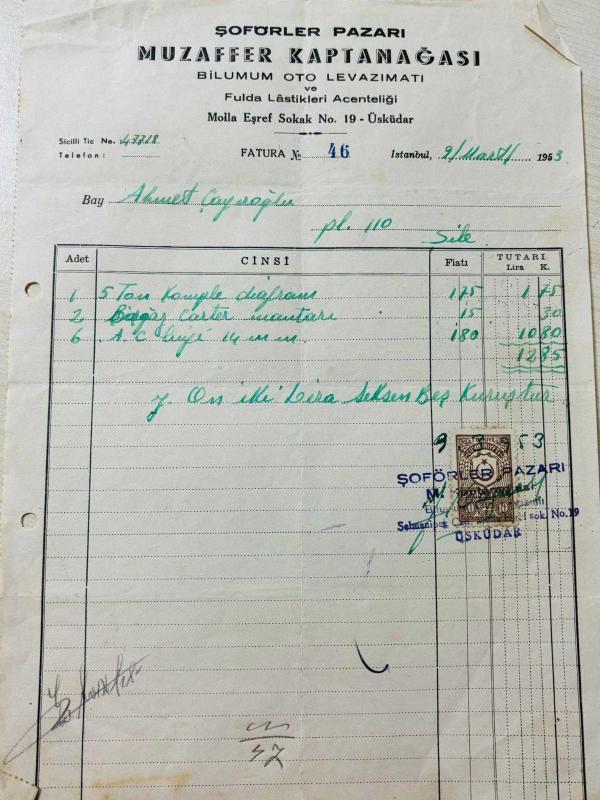 ŞOFÖRLER PAZARI
MUZAFFER KAPTANAĞASI
BİLUMUM OTO LEVAZIMATI
ve
Fulda Lâstikleri Acenteliği
Molla Eşref Sokak No. 19 - Üsküdar
Sicilli Tic No. 47718
Telefon:
FATURA № 46
Istanbul, 9/Mart/ 1953
Bay Ahmet Çayıroğlu
pl. 110
Şile
Adet CİNSİ Fiatı TUTARI
Lira K.
1 5 Ton Komple diafram 175 1 75
2 Carter mantarı 15 30
6 A.C. buji 14 mm. 180 10 80
12 85
y. On iki Lira Seksen Beş Kuruştur
9 3 953
ŞOFÖRLER PAZARI
M.
sok. No.19
ÜSKÜDAR
47